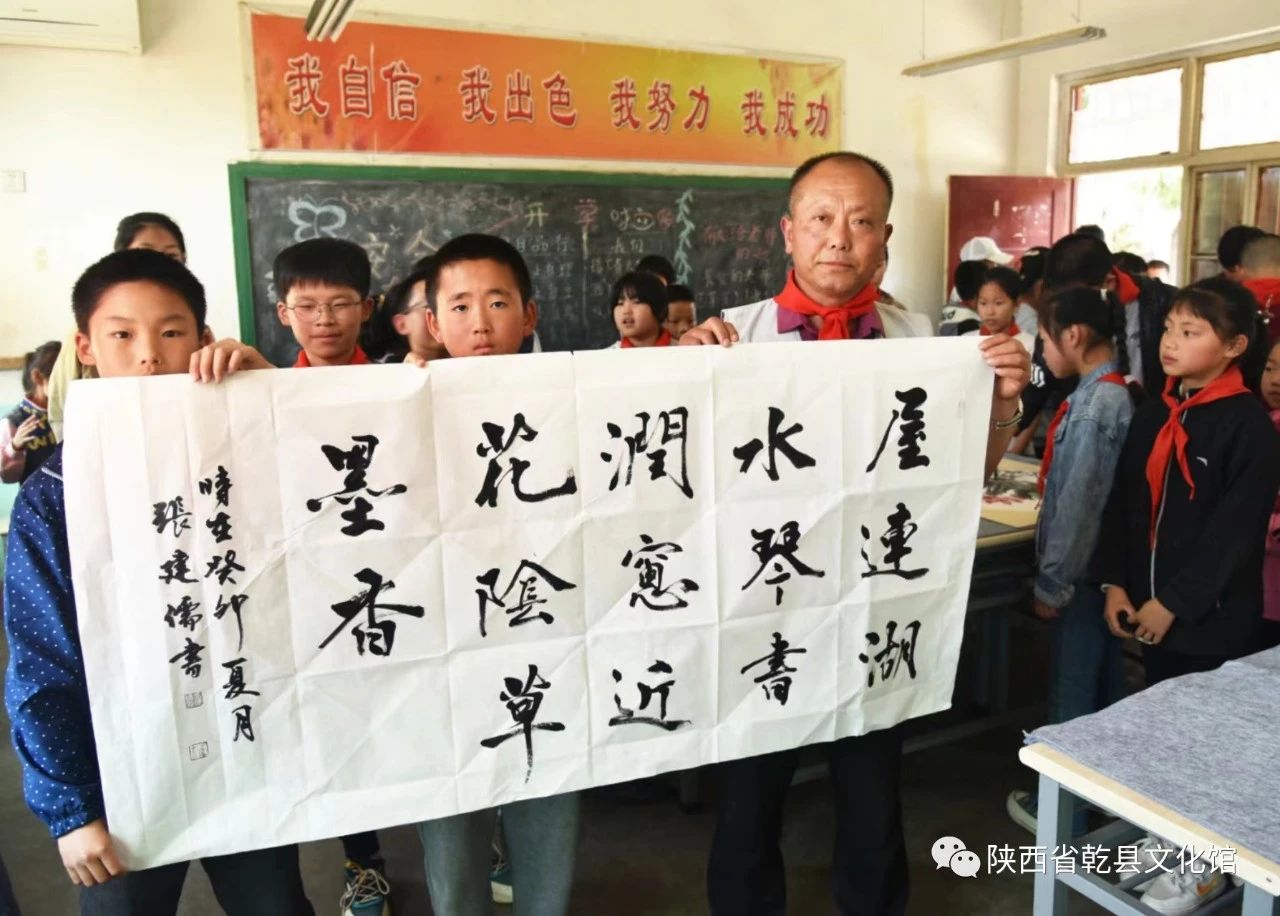 我自信 我出色 我努力 我成功
开学
屋連湖
水琴書
潤窓近
花陰草
墨香
時在癸卯夏月
張建儒書
陕西省乾县文化馆